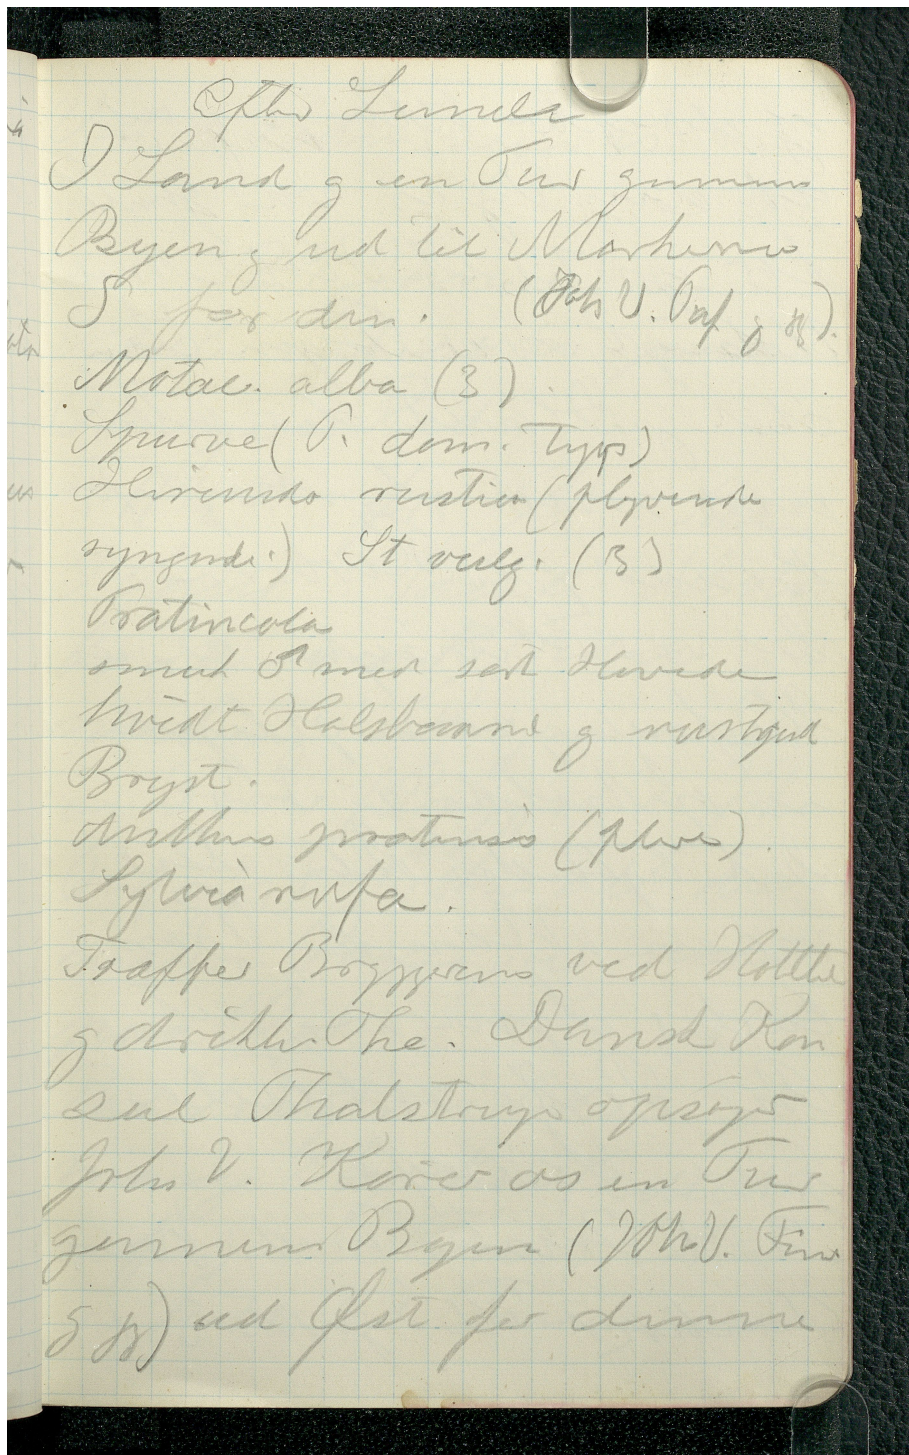 Efter
I Land og en Tur gennem
Byen og ud til Markerne
S for den. (Joh V. Taf og jeg).
Motac. alba (3).
Spurve (P. dom. Typ)
Hirundo rustica (flyvende
syngende.) St vulg. (3)
Pratincola
smuk ♂ med sort Hovede
hvidt Halsbaand og rustrød
Bryst.
Anthus pratensis (flere).
Sylvia rufa.
Træffer Bryggerens ved Hottlle
og drikker The. Dansk Kon
sul Thalstrup opsøger
Johs V. Kører os en Tur
gennem Byen (Joh V. Finn
og jeg) ud Øst for denne